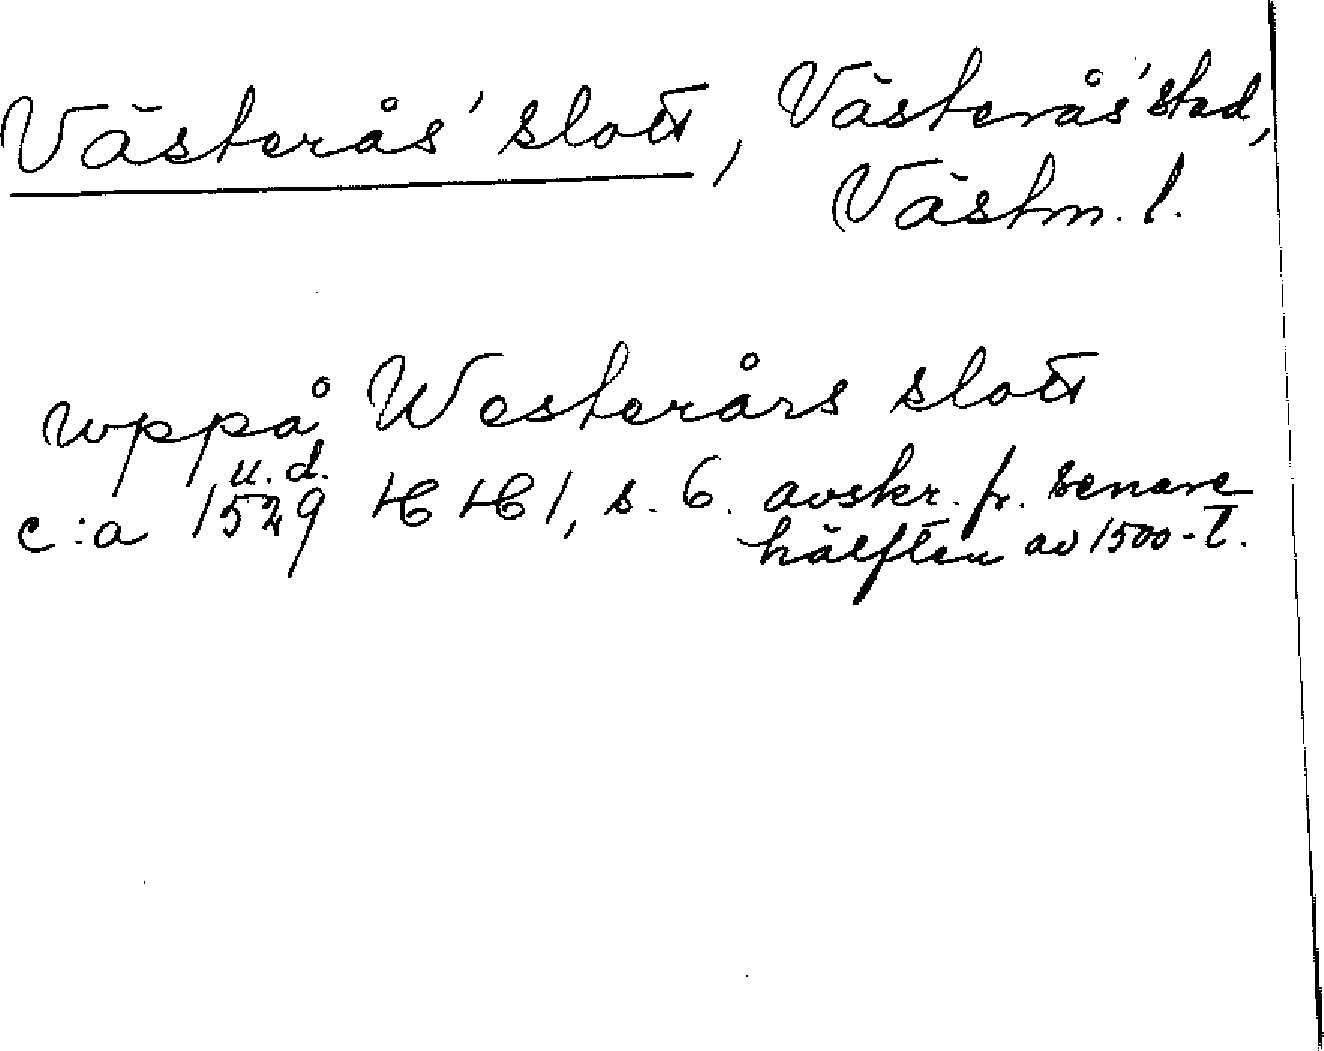 Västerås' slott, Västerås' stad,
Västm. l.
uppå Westerårs slott
u.d.
c:a 1529 HH 1, s. 6. avskr. fr. senare
hälften av 1500-t.